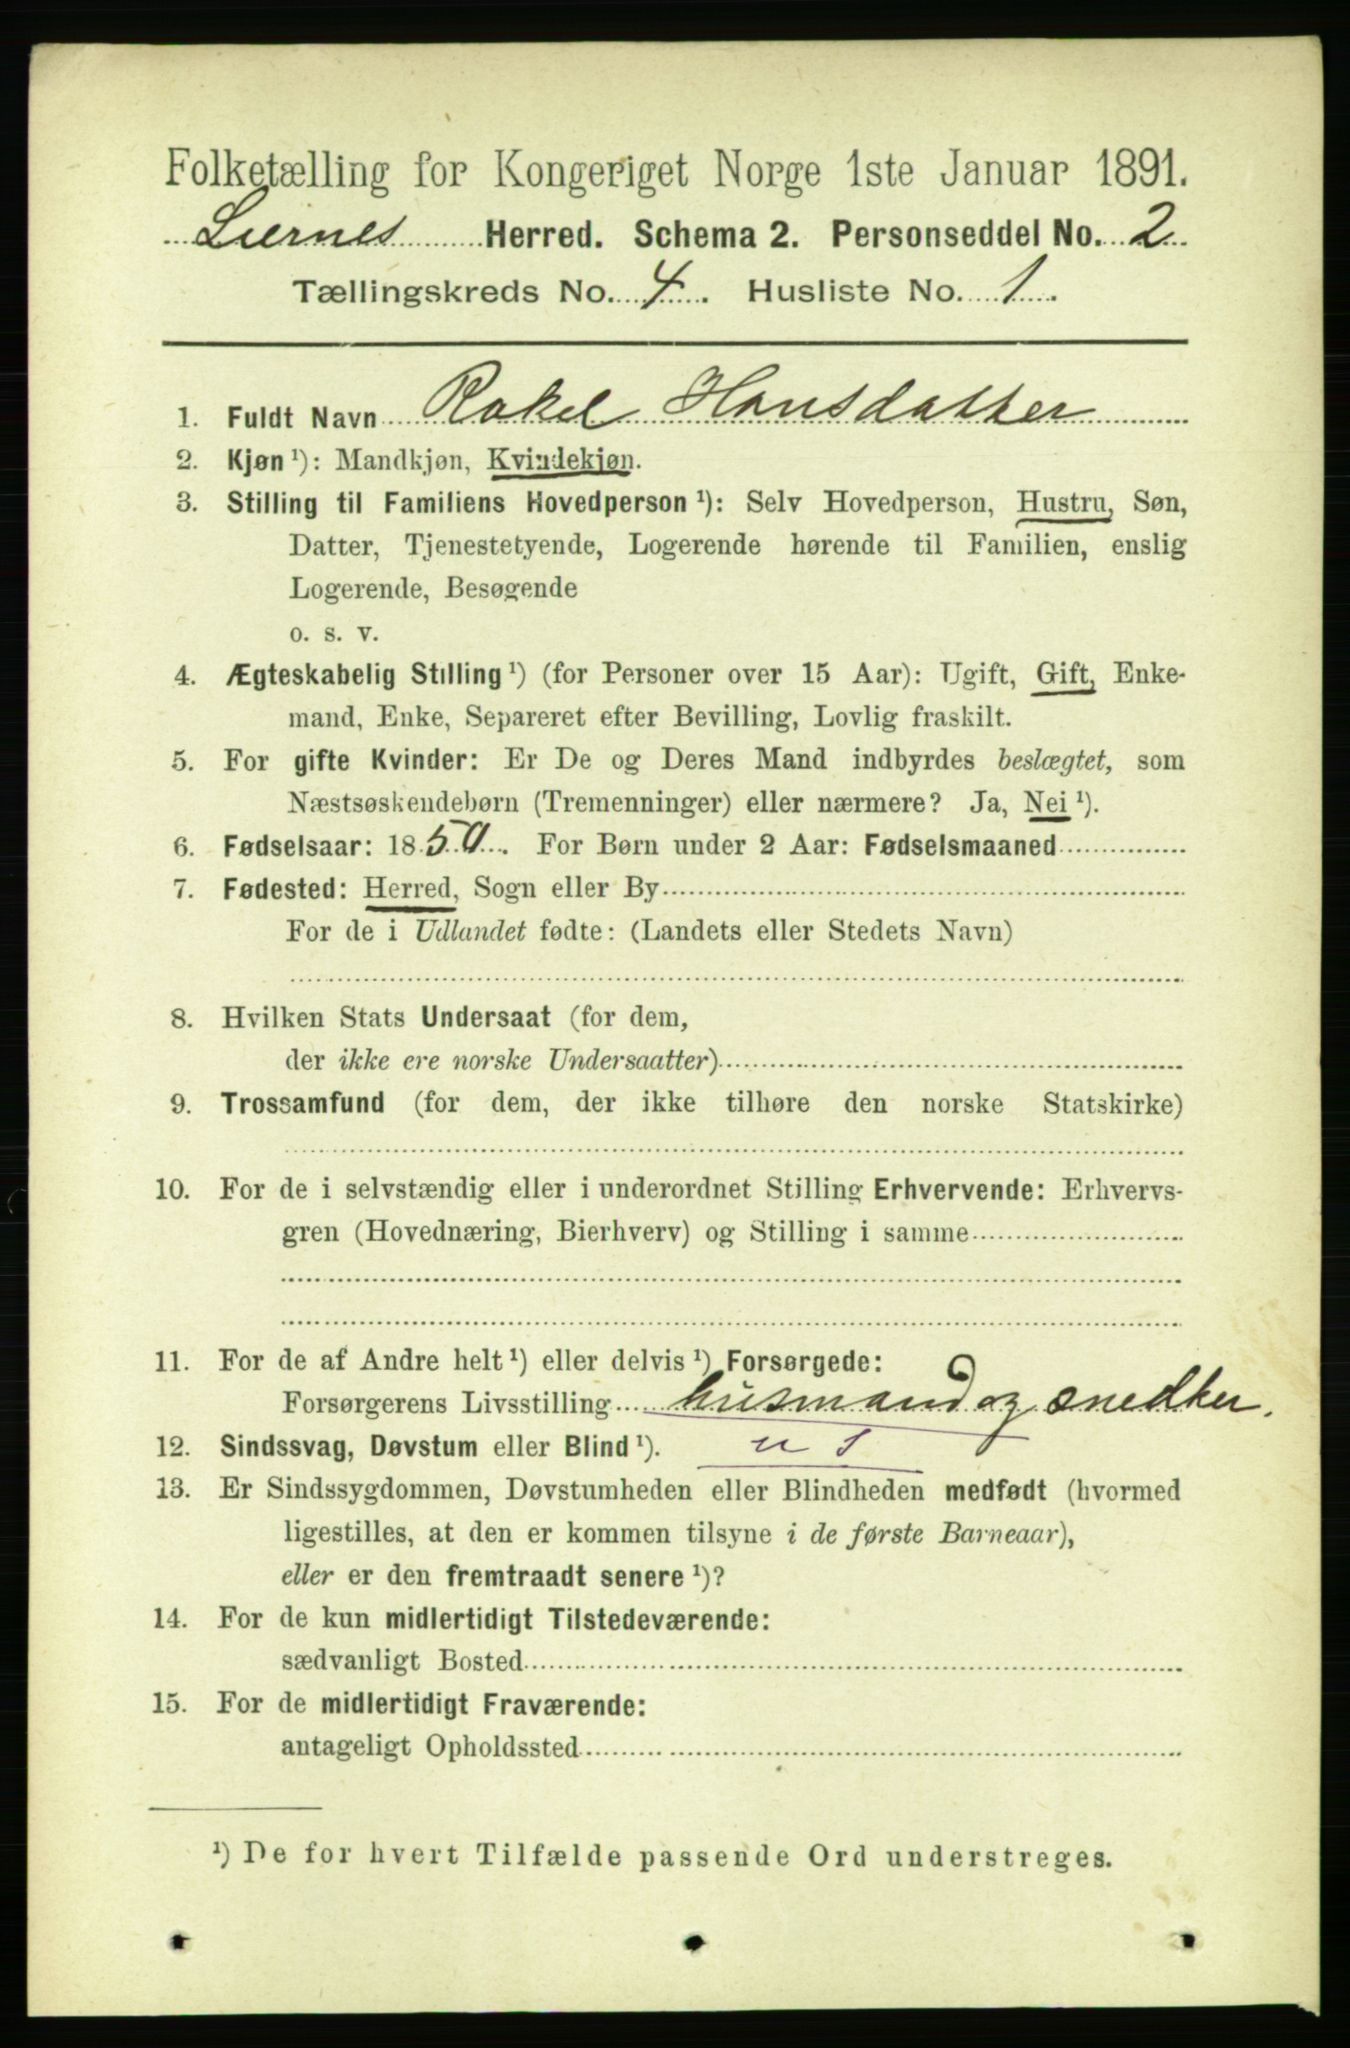 Folketælling for Kongeriget Norge 1ste Januar 1891.
Liernes Herred. Schema 2. Personseddel No. 2
Tællingskreds No. 4. Husliste No. 1.
1. Fuldt Navn Rakel Hansdatter
2. Kjøn ¹): Mandkjøn, Kvindekjøn.
3. Stilling til Familiens Hovedperson ¹): Selv Hovedperson, Hustru, Søn,
Datter, Tjenestetyende, Logerende hørende til Familien, enslig
Logerende, Besøgende
o. s. v.
4. Ægteskabelig Stilling ¹) (for Personer over 15 Aar): Ugift, Gift, Enke-
mand, Enke, Separeret efter Bevilling, Lovlig fraskilt.
5. For gifte Kvinder: Er De og Deres Mand indbyrdes beslægtet, som
Næstsøskendebørn (Tremenninger) eller nærmere? Ja, Nei ¹).
6. Fødselsaar: 1850. For Børn under 2 Aar: Fødselsmaaned
7. Fødested: Herred, Sogn eller By
For de i Udlandet fødte: (Landets eller Stedets Navn)
8. Hvilken Stats Undersaat (for dem,
der ikke ere norske Undersaatter)
9. Trossamfund (for dem, der ikke tilhøre den norske Statskirke)
10. For de i selvstændig eller i underordnet Stilling Erhvervende: Erhvervs-
gren (Hovednæring, Bierhverv) og Stilling i samme
11. For de af Andre helt ¹) eller delvis ¹) Forsørgede:
Forsørgerens Livsstilling husmand og snedker.
12. Sindssvag, Døvstum eller Blind ¹).
13. Er Sindssygdommen, Døvstumheden eller Blindheden medfødt (hvormed
ligestilles, at den er kommen tilsyne i de første Barneaar),
eller er den fremtraadt senere ¹)?
14. For de kun midlertidigt Tilstedeværende:
sædvanligt Bosted
15. For de midlertidigt Fraværende:
antageligt Opholdssted
¹) De for hvert Tilfælde passende Ord understreges.